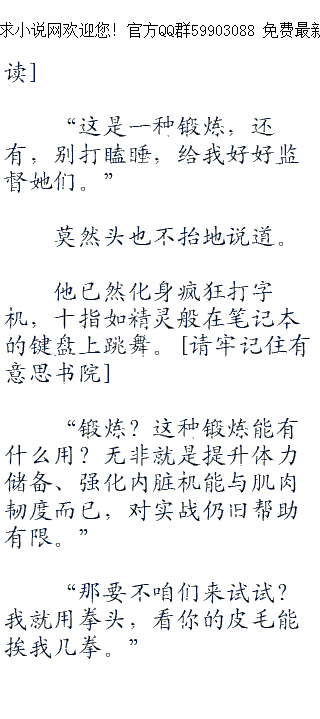 求小说网欢迎您! 官方QQ群59903088 免费最新
读]
“这是一种锻炼，还
有，别打瞌睡，给我好好监
督她们。”
莫然头也不抬地说道。
他已然化身疯狂打字
机，十指如精灵般在笔记本
的键盘上跳舞。[请牢记住有
意思书院]
“锻炼？这种锻炼能有
什么用？无非就是提升体力
储备、强化内脏机能与肌肉
韧度而已，对实战仍旧帮助
有限。”
“那要不咱们来试试？
我就用拳头，看你的皮毛能
挨我几拳。”